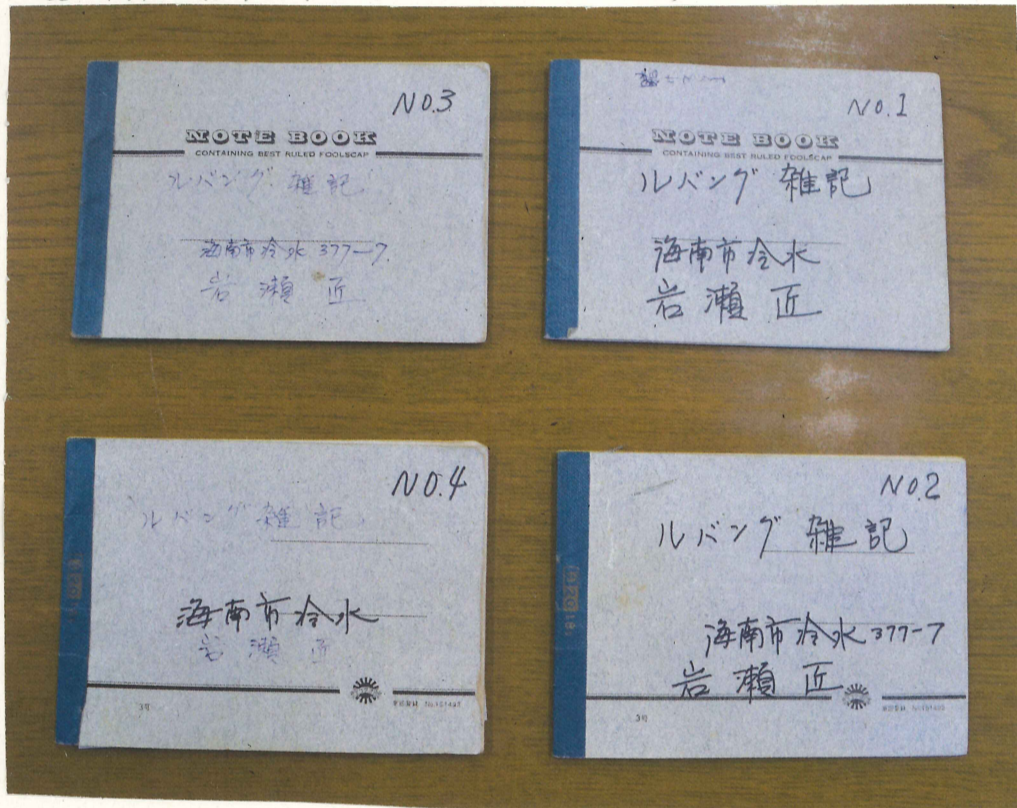 NO.3
NOTE BOOK
CONTAINING BEST RULED FOOLSCAP
ルバング 雑記
海南市冷水 377-7
岩瀬 匠
NO.1
NOTE BOOK
CONTAINING BEST RULED FOOLSCAP
ルバング 雑記
海南市冷水
岩瀬 匠
NO.4
ルバング 雑記
海南市冷水
岩瀬 匠
3号
NO.2
ルバング 雑記
海南市冷水 377-7
岩瀬 匠
3号